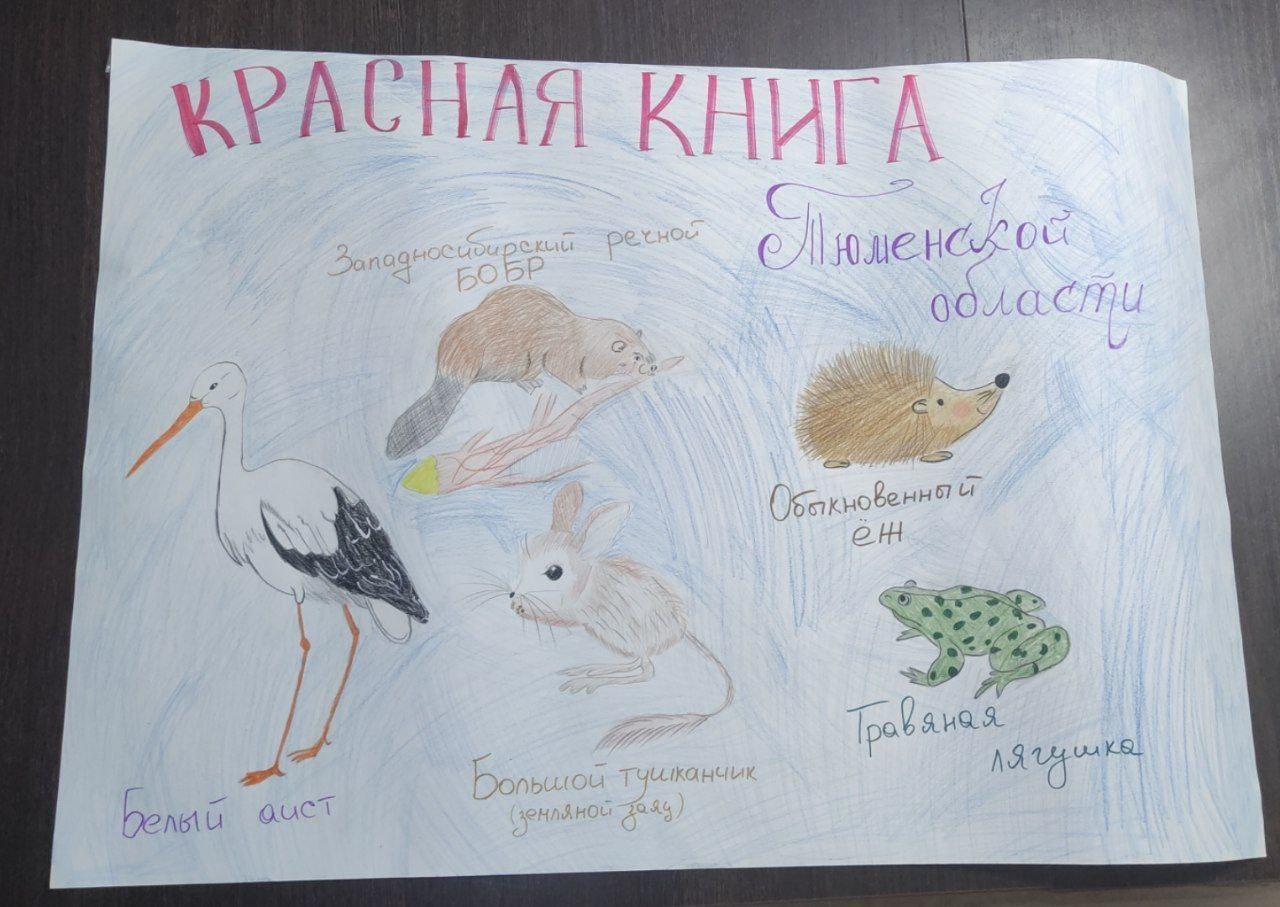 КРАСНАЯ КНИГА
Тюменской
области
Западносибирский речной
БОБР
Обыкновенный
ёж
Травяная
лягушка
Большой тушканчик
(земляной заяц)
Белый аист